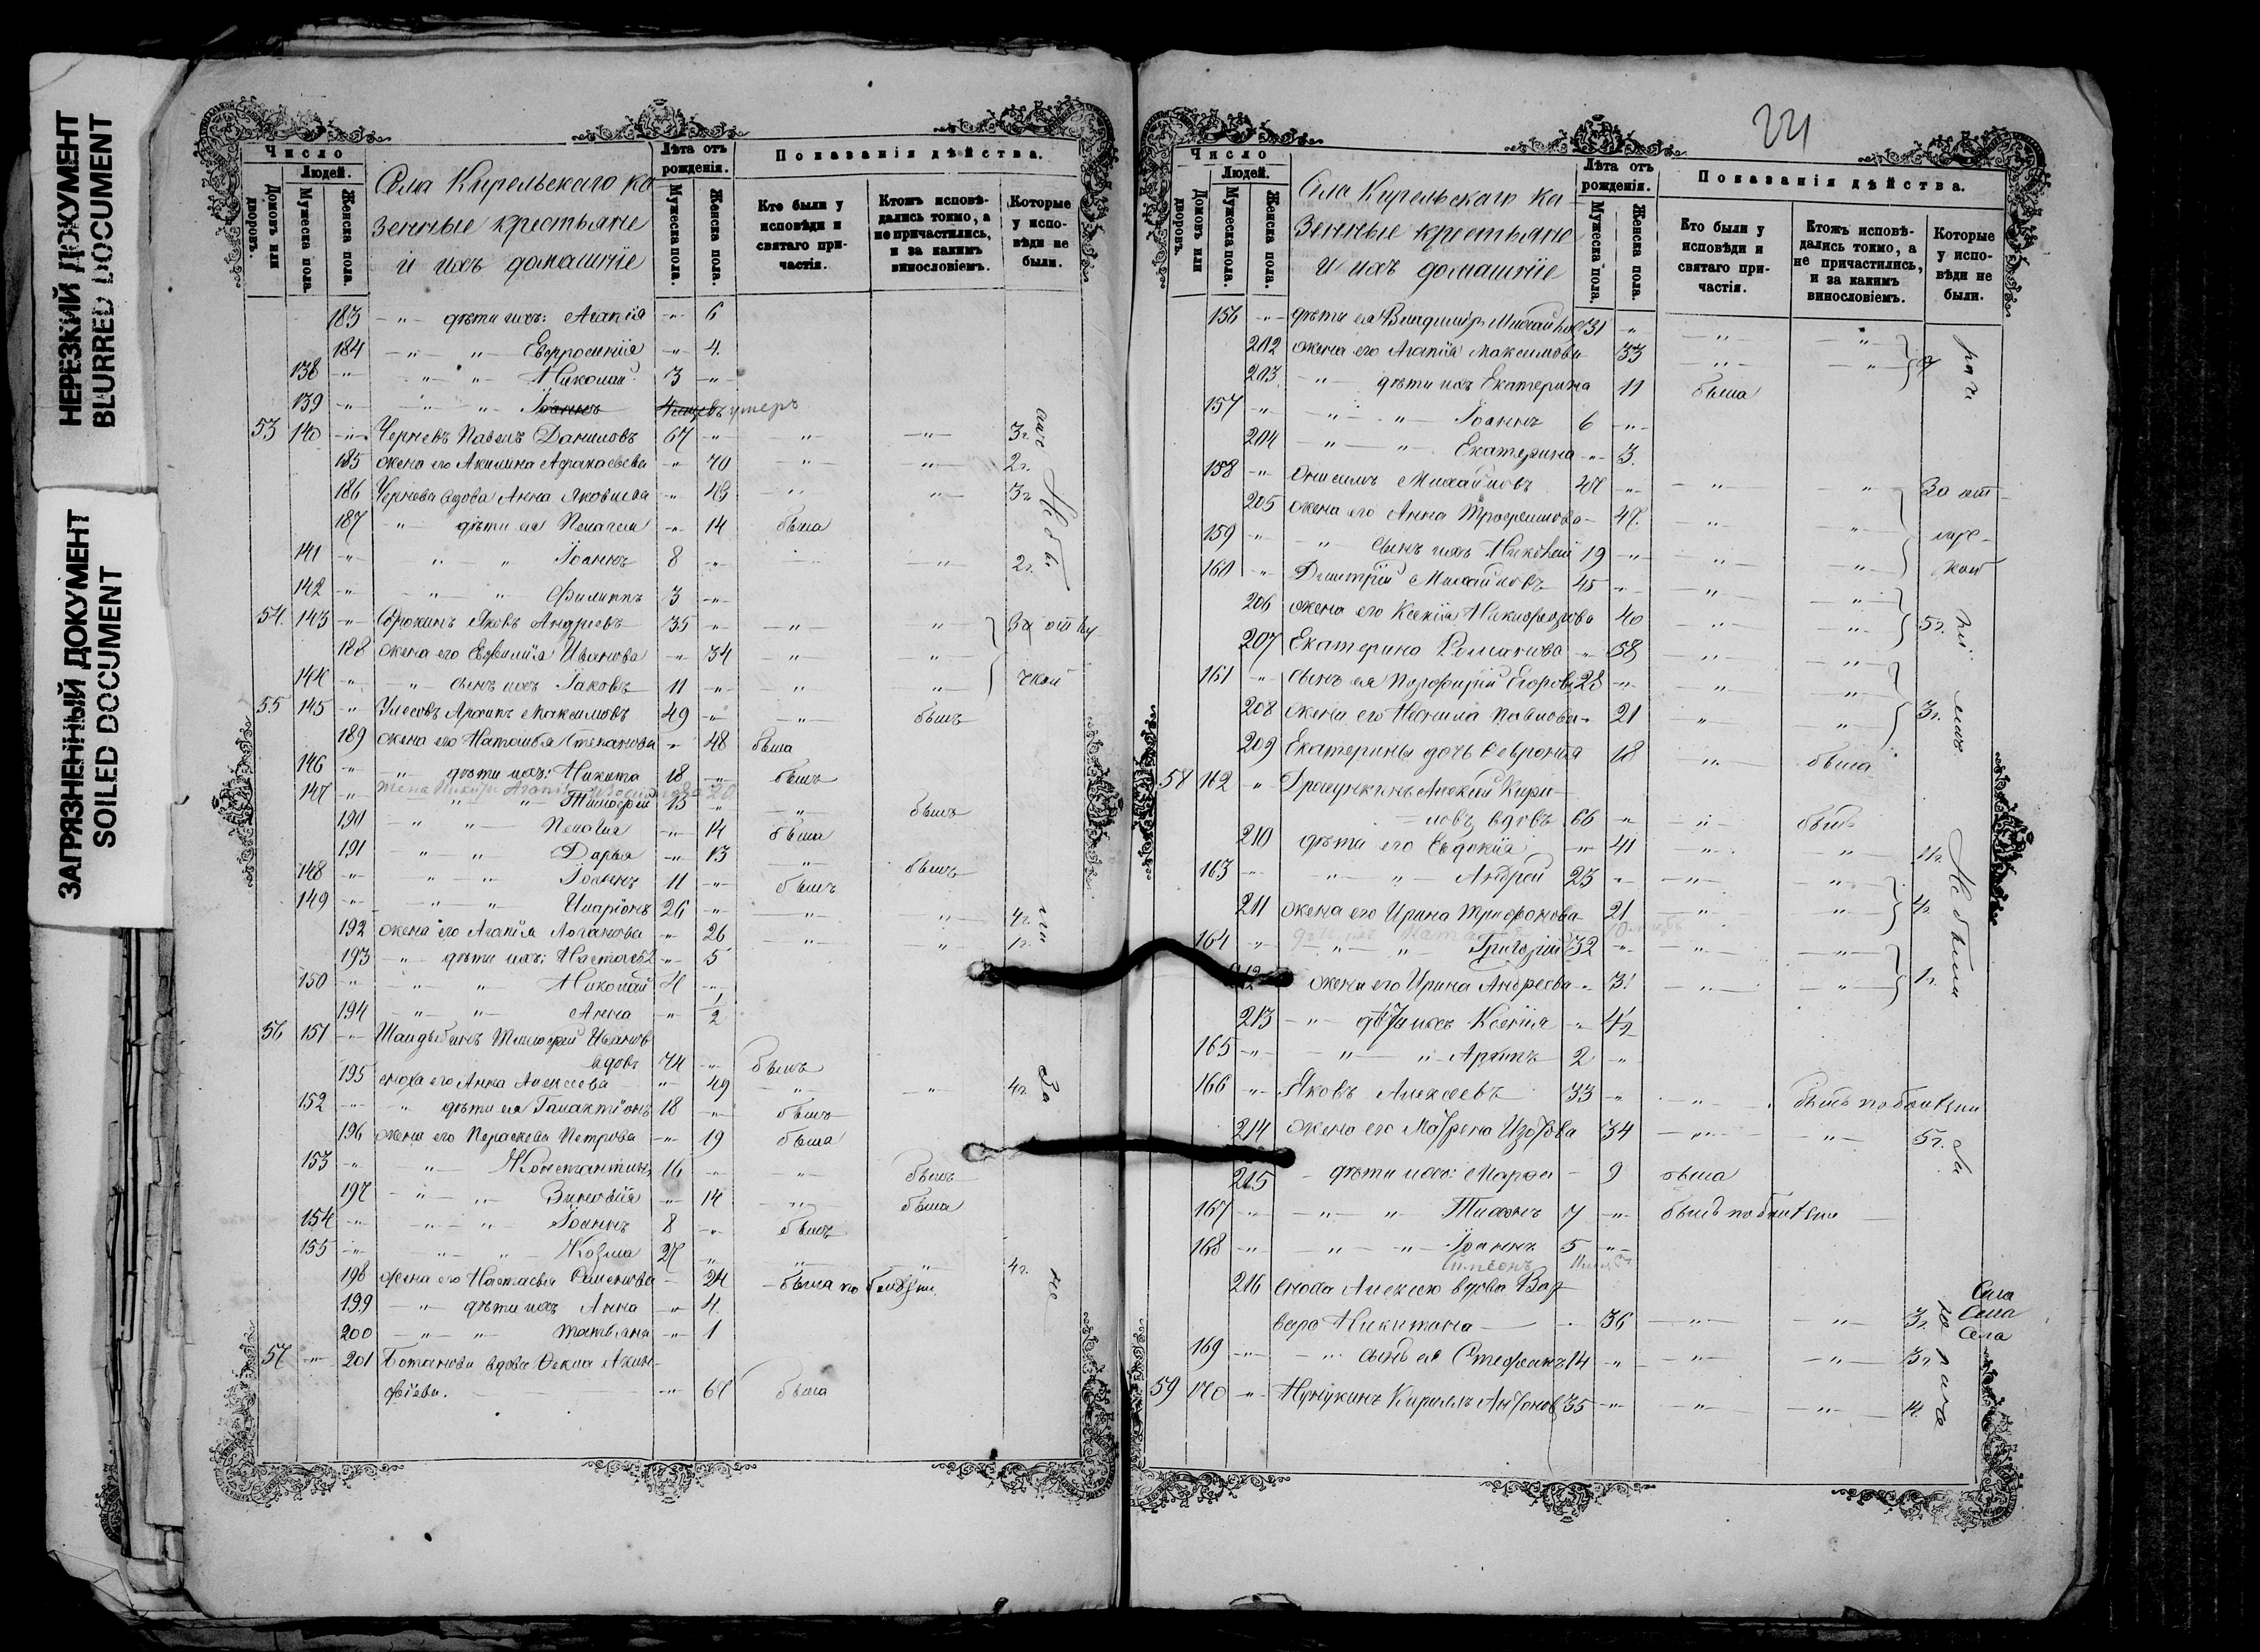 НЕРЕЗКИЙ ДОКУМЕНТ
BLURRED DOCUMENT
ЗАГРЯЗНЕННЫЙ ДОКУМЕНТ
SOILED DOCUMENT
Число
Людей.
Домовъ или дворовъ.
Мужеска пола.
Женска пола.
Села Кирельскаго ка
зенные крестьяне
и ихъ домашніе
Лѣта отъ рожденія.
Мужеска пола.
Женска пола.
Показанія дѣйства.
Кто были у исповѣди и святаго причастія.
Ктожъ исповѣдались токмо, а не причастились, и за какимъ винословіемъ.
Которые у исповѣди не были.
183 -"- дѣти ихъ: Агапія -"- 6
184 -"- -"- Евфросинія -"- 4.
138 -"- -"- -"- Николай 3 -"-
139 -"- -"- -"- Іоаннъ умеръ
53 140 -"- Черневъ Павелъ Даниловъ 67 -"- -"- -"- 3г.
185 жена его Акилина Афанасьева -"- 70 -"- -"- 2г.
186 Чернева вдова Анна Яковлева -"- 43 -"- -"- 3г.
187 -"- дѣти ея Пелагея -"- 14 была
141 -"- -"- -"- Іоаннъ 8 -"- -"- -"- 2г.
142 -"- -"- -"- Филиппъ 3 -"-
54. 143 -"- Сорокинъ Яковъ Андреевъ 35 -"- -"- -"- За отлу
188 жена его Евфимія Иванова -"- 34 -"- -"-
144 -"- -"- сынъ ихъ Іаковъ 11 -"- -"- -"- чкой
55 145 -"- Улесовъ Архипъ Максимовъ 49 -"- -"- былъ
189 жена его Наталья Степанова -"- 48 была
146 -"- -"- дѣти ихъ: Никита 18 -"- былъ
жена Никиты Агапія 20
147 -"- -"- -"- Тимофей 15 -"- -"- былъ
190 -"- -"- Пелагія -"- 14 была
191 -"- -"- Дарья -"- 13 -"-
148 -"- -"- -"- Іоаннъ 11 -"- былъ былъ
149 -"- -"- -"- Иларіонъ 26 -"- -"- -"- 4г.
192 жена его Агапія Логинова -"- 26 -"- -"- 1г.
193 -"- дѣти ихъ: Настасья -"- 5
150 -"- -"- -"- Николай 4 -"-
194 -"- -"- Анна -"- 1/2
56 151 -"- Шандыбинъ Тимофей Ивановъ
вдовъ 74 -"- былъ
195 сноха его Анна Алексеева -"- 49 -"- -"- 4г.
152 -"- -"- дѣти ея Галактіонъ 18 -"- былъ
196 жена его Параскева Петрова -"- 19 была
153 -"- -"- Константинъ 16 -"- -"- былъ
197 -"- -"- Зиновія -"- 14 -"- была
154 -"- -"- -"- Іоаннъ 8 -"- былъ
155 -"- -"- -"- Козма 27 -"- -"- -"- 4г.
198 жена его Настасья Семенова - 24 была по болѣзни
199 -"- дѣти ихъ Анна -"- 4.
200 -"- -"- Татьяна -"- 1
57 -"- 201 Ботанова вдова Фекла Акин-
фіева. -"- 67 была
221
Число
Людей.
Домовъ или дворовъ.
Мужеска пола.
Женска пола.
Села Кирельскаго ка
зенные крестьяне
и ихъ домашніе
Лѣта отъ рожденія.
Мужеска пола.
Женска пола.
Показанія дѣйства.
Кто были у исповѣди и святаго причастія.
Ктожъ исповѣдались токмо, а не причастились, и за какимъ винословіемъ.
Которые у исповѣди не были.
156 -"- дѣти ея Владиміръ Михайловъ 31 -"- -"- -"-
202 жена его Агапія Максимова 33 -"- -"-
203 -"- дѣти ихъ Екатерина 11 была
157 -"- -"- -"- Іоаннъ 6 -"-
204 -"- -"- Екатерина -"- 3.
158 -"- Онисимъ Михайловъ 47 -"- -"- -"- За от-
205 жена его Анна Трофимова 47. -"- -"-
159 -"- -"- сынъ ихъ Николай 19 -"- -"- -"-
160 -"- Дмитрій Михайловъ 45 -"- -"- -"-
206 жена его Ксенія Никифорова 40 -"- -"- 5г.
207 Екатерина Романова -"- 58 -"- -"-
161 -"- сынъ ея Порфирій Егоровъ 23 -"- -"- -"-
208 жена его Неонила Павлова -"- 21 -"- -"- 3г.
209 Екатерины дочь Февронія 18 -"- была
58 162 -"- Драгункинъ Алексѣй Кири-
ловъ вдовъ 66 -"- -"- былъ
210 дѣти его Евдокія -"- 41 -"- -"-
163 -"- -"- -"- Андрей 23 -"- -"- -"-
211 жена его Ирина Трифонова 21 -"- -"- 4г.
164 -"- -"- -"- Григорій 32 -"- -"- -"-
212 жена его Ирина Андреева -"- 31 -"- -"- 1г.
213 -"- дѣти ихъ Ксенія -"- 4 1/2
165 -"- -"- -"- Архипъ 2 -"-
166 -"- Яковъ Алексеевъ 33 -"- -"- былъ по болѣзни
214 жена его Матрена Изотова 34 -"- -"- 5г.
215 - дѣти ихъ: Марфа - 9 была
167 -"- -"- -"- Тихонъ 7 -"- былъ по болѣзни
168 -"- -"- -"- Іоаннъ 5 -"-
Симеонъ
216 сноха Алексѣю вдова Вар-
вара Никитина - 36 -"- -"- 3г.
169 -"- -"- сынъ ея Стефанъ 14 -"- -"- -"- 3г.
59 170 -"- Кирилъ Антонов 35 -"- -"- -"-
Села
Села
Села